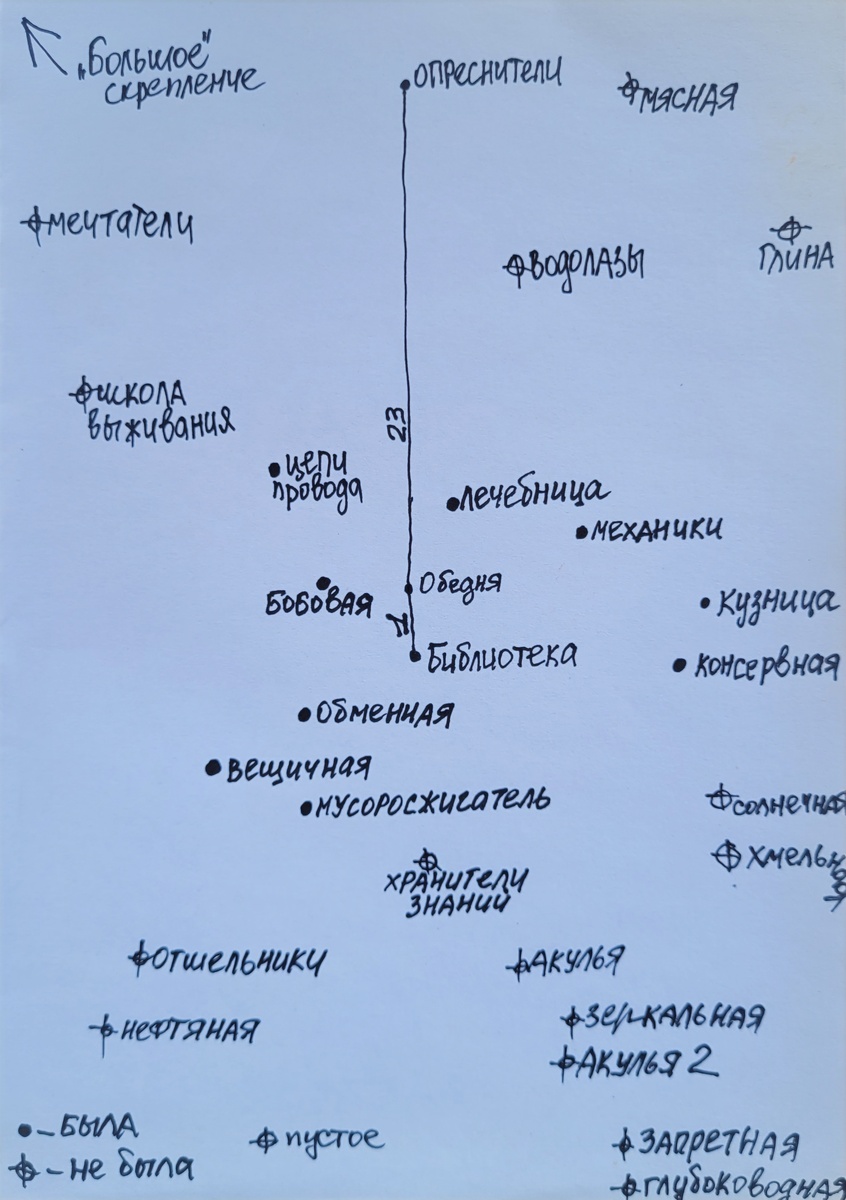 „Большое"
скрепление
Опреснители
Мясная
Мечтатели
Водолазы
Глина
школа
выживания
23
цепи
провода
лечебница
механики
Бобовая
Обедня
Кузница
1
Библиотека
консервная
Обменная
Вещичная
Мусоросжигатель
солнечная
Хмельная
Хранители
знаний
Отшельники
Акулья
Зеркальная
Нефтяная
Акулья 2
– была
пустое
Запретная
– не была
глубоководная